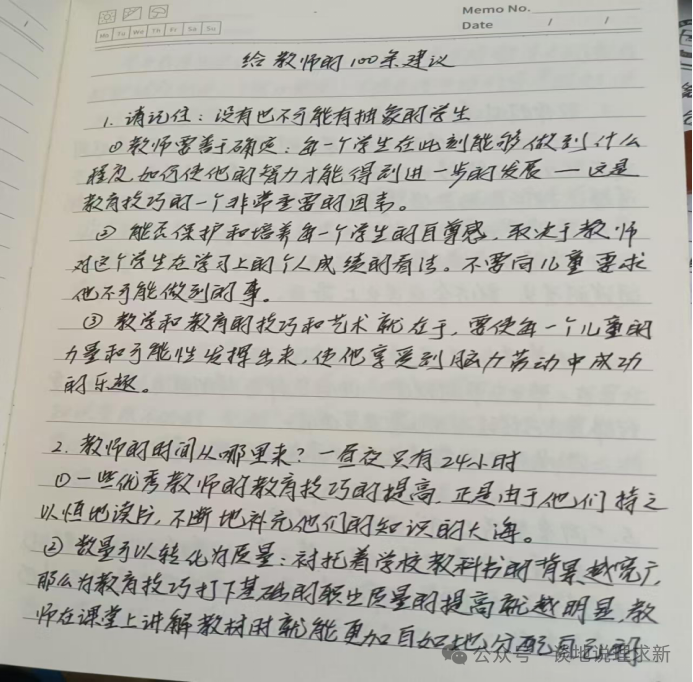 Memo No.
Mo Tu We Th Fr Sa Su
Date / /
给教师的100条建议
1. 请记住:没有也不可能有抽象的学生
①教师要善于确定:每一个学生在此刻能够做到什么
程度,如何使他的智力才能得到进一步的发展—这是
教育技巧的一个非常重要的因素。
② 能否保护和培养每一个学生的自尊感,取决于教师
对这个学生在学习上的个人成绩的看法。不要向儿童要求
他不可能做到的事。
③ 教学和教育的技巧和艺术就在于,要使每一个儿童的
力量和可能性发挥出来,使他享受到脑力劳动中成功
的乐趣。
2. 教师的时间从哪里来?一昼夜只有24小时
①一些优秀教师的教育技巧的提高,正是由于他们持之
以恒地读书,不断地补充他们的知识的大海。
② 数量可以转化为质量:衬托着学校教科书的背景越宽广,
那么为教育技巧打下基础的职业质量的提高就越明显,教
师在课堂上讲解教材时就能更加自如地分配自己的
公众号 谈地说理求新